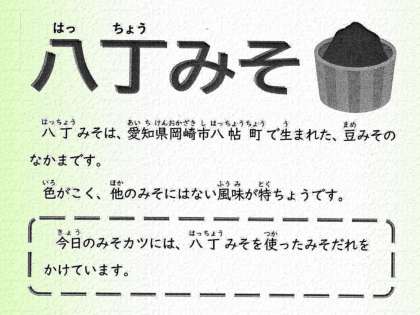 はっ ちょう
八丁みそ
はっちょう あいちけんおかざきし はっちょうちょう う まめ
八丁みそは、愛知県岡崎市八帖町で生まれた、豆みその
なかまです。
いろ ほか ふうみ とく
色がこく、他のみそにはない風味が特ちょうです。
きょう はっちょう つか
今日のみそカツには、八丁みそを使ったみそだれを
かけています。